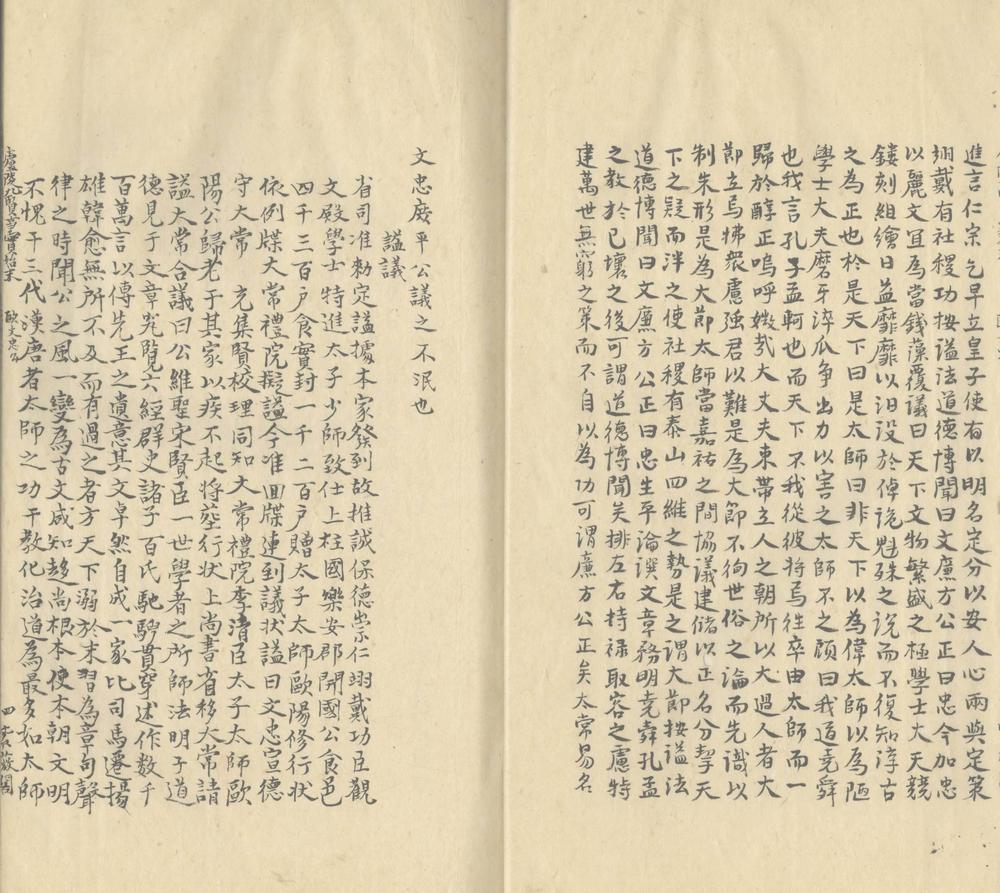 進言仁宗乞早立皇子使有以明名定分以安人心兩與定策
翊戴有社稷功按謚法道德博聞曰文廉方公正曰忠今加忠
以麗文宜為當錢藻覆議曰天下文物繁盛之極學士大夫競
鏤刻組繪日益靡靡以汨没於倬詭魁殊之説而不復知淳古
之為正也於是天下曰是太師曰非天下以為偉太師以為陋
學士大夫磨牙淬爪争出力以害之太師不之顧曰我道堯舜
也我言孔子孟軻也而天下不我從彼将焉往卒由太師而一
歸於醇正嗚呼媺哉大丈夫束帶立人之朝所以大過人者大
節立焉拂衆慮强君以難是為大節不徇世俗之論而先識以
制未形是為大節太師當嘉祐之間協議建儲以正名分挈天
下之疑而泮之使社稷有泰山四維之勢是之謂大節按謚法
道德博聞曰文廉方公正曰忠生平論譔文章務明堯舜孔孟
之教於已壞之後可謂道德博聞矣排左右持禄取容之慮特
建萬世無窮之策而不自以為功可謂廉方公正矣太常易名
文忠庻平公議之不泯也
謚議
省司准勑定謚據本家發到故推誠保德崇仁翊戴功臣觀
文殿學士特進太子少師致仕上柱國樂安郡開國公食邑
四千三百户食實封一千二百户贈太子太師歐陽修行状
依例牒大常禮院擬謚今准回牒連到議状謚曰文忠宣德
守大常 充集賢校理同知大常禮院李清臣太子太師歐
陽公歸老于其家以疾不起将塟行状上尚書省移大常請
謚大常合議曰公維聖宋賢臣一世學者之所師法明于道
德見于文章究覽六經群史諸子百氏馳騁貫穿述作數千
百萬言以傳先王之遺意其文卓然自成一家比司馬遷揚
雄韓愈無所不及而有過之者方天下溺於末習為章句聲
律之時聞公之風一變為古文咸知趍尚根本使本朝文明
不愧于三代漢唐者太師之功于教化治道為最多如太師
歐文忠公
四